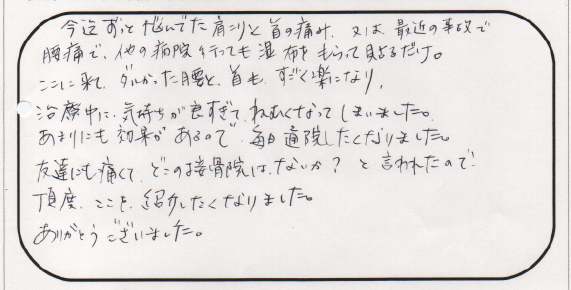 今迄ずっと悩んでた肩こりと首の痛み、又は、最近の事故で
腰痛で、他の病院行っても湿布をもらって貼るだけ。
ここに来て、ダルかった腰と、首も、すごく楽になり、
治療中に、気持ちが良すぎて、ねむくなってしまいました。
あまりにも効果があるので、毎日通院したくなりました。
友達にも痛くて、どこの接骨院はないか？と言われたので！
丁度、ここを、紹介したくなりました。
ありがとうございました。